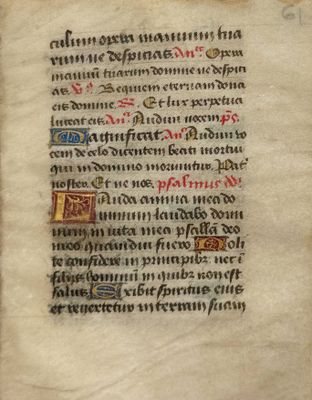 61
culum opera manuum tua
rum ne despicias. An͠a. Opera
manuum tuarum domine ne despici
as. V͠s. Requiem eternam dona
eis domine. R͠. Et lux perpetua
luceat eis. An͠a. Audiui vocem. p͠s.
Magnificat. An͠a. Audiui vo
cem de celo dicentem beati mortui
qui in domino moriuntur. Pat͛
noster. Et ne nos. psalmus dd.
Lauda anima mea do
minum laudabo domi
num in vita mea psallam deo
meo quamdiu fuero. Noli
te confidere in principibꝫ nec ĩ
filijs hominum in quibꝫ non est
salus. Exibit spiritus eius
et reuertetur in terram suam